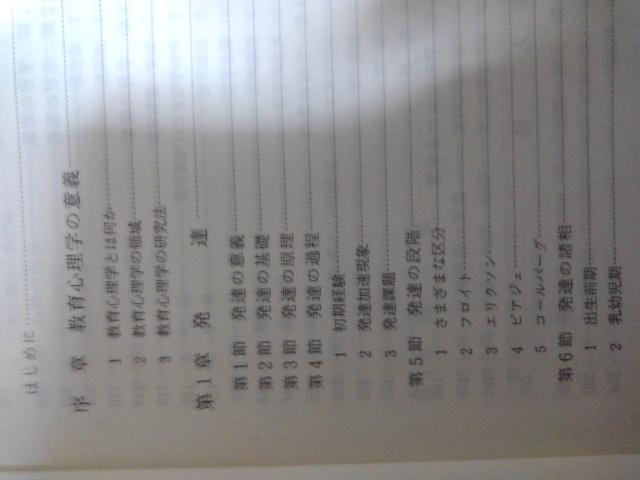 はじめに
序章 教育心理学の意義
1 教育心理学とは何か
2 教育心理学の領域
3 教育心理学の研究法
第1章 発達
第1節 発達の意義
第2節 発達の基礎
第3節 発達の原理
第4節 発達の過程
1 初期経験
2 発達加速現象
3 発達課題
第5節 発達の段階
1 さまざまな区分
2 フロイト
3 エリクソン
4 ピアジェ
5 コールバーグ
第6節 発達の諸相
1 出生前期
2 乳幼児期